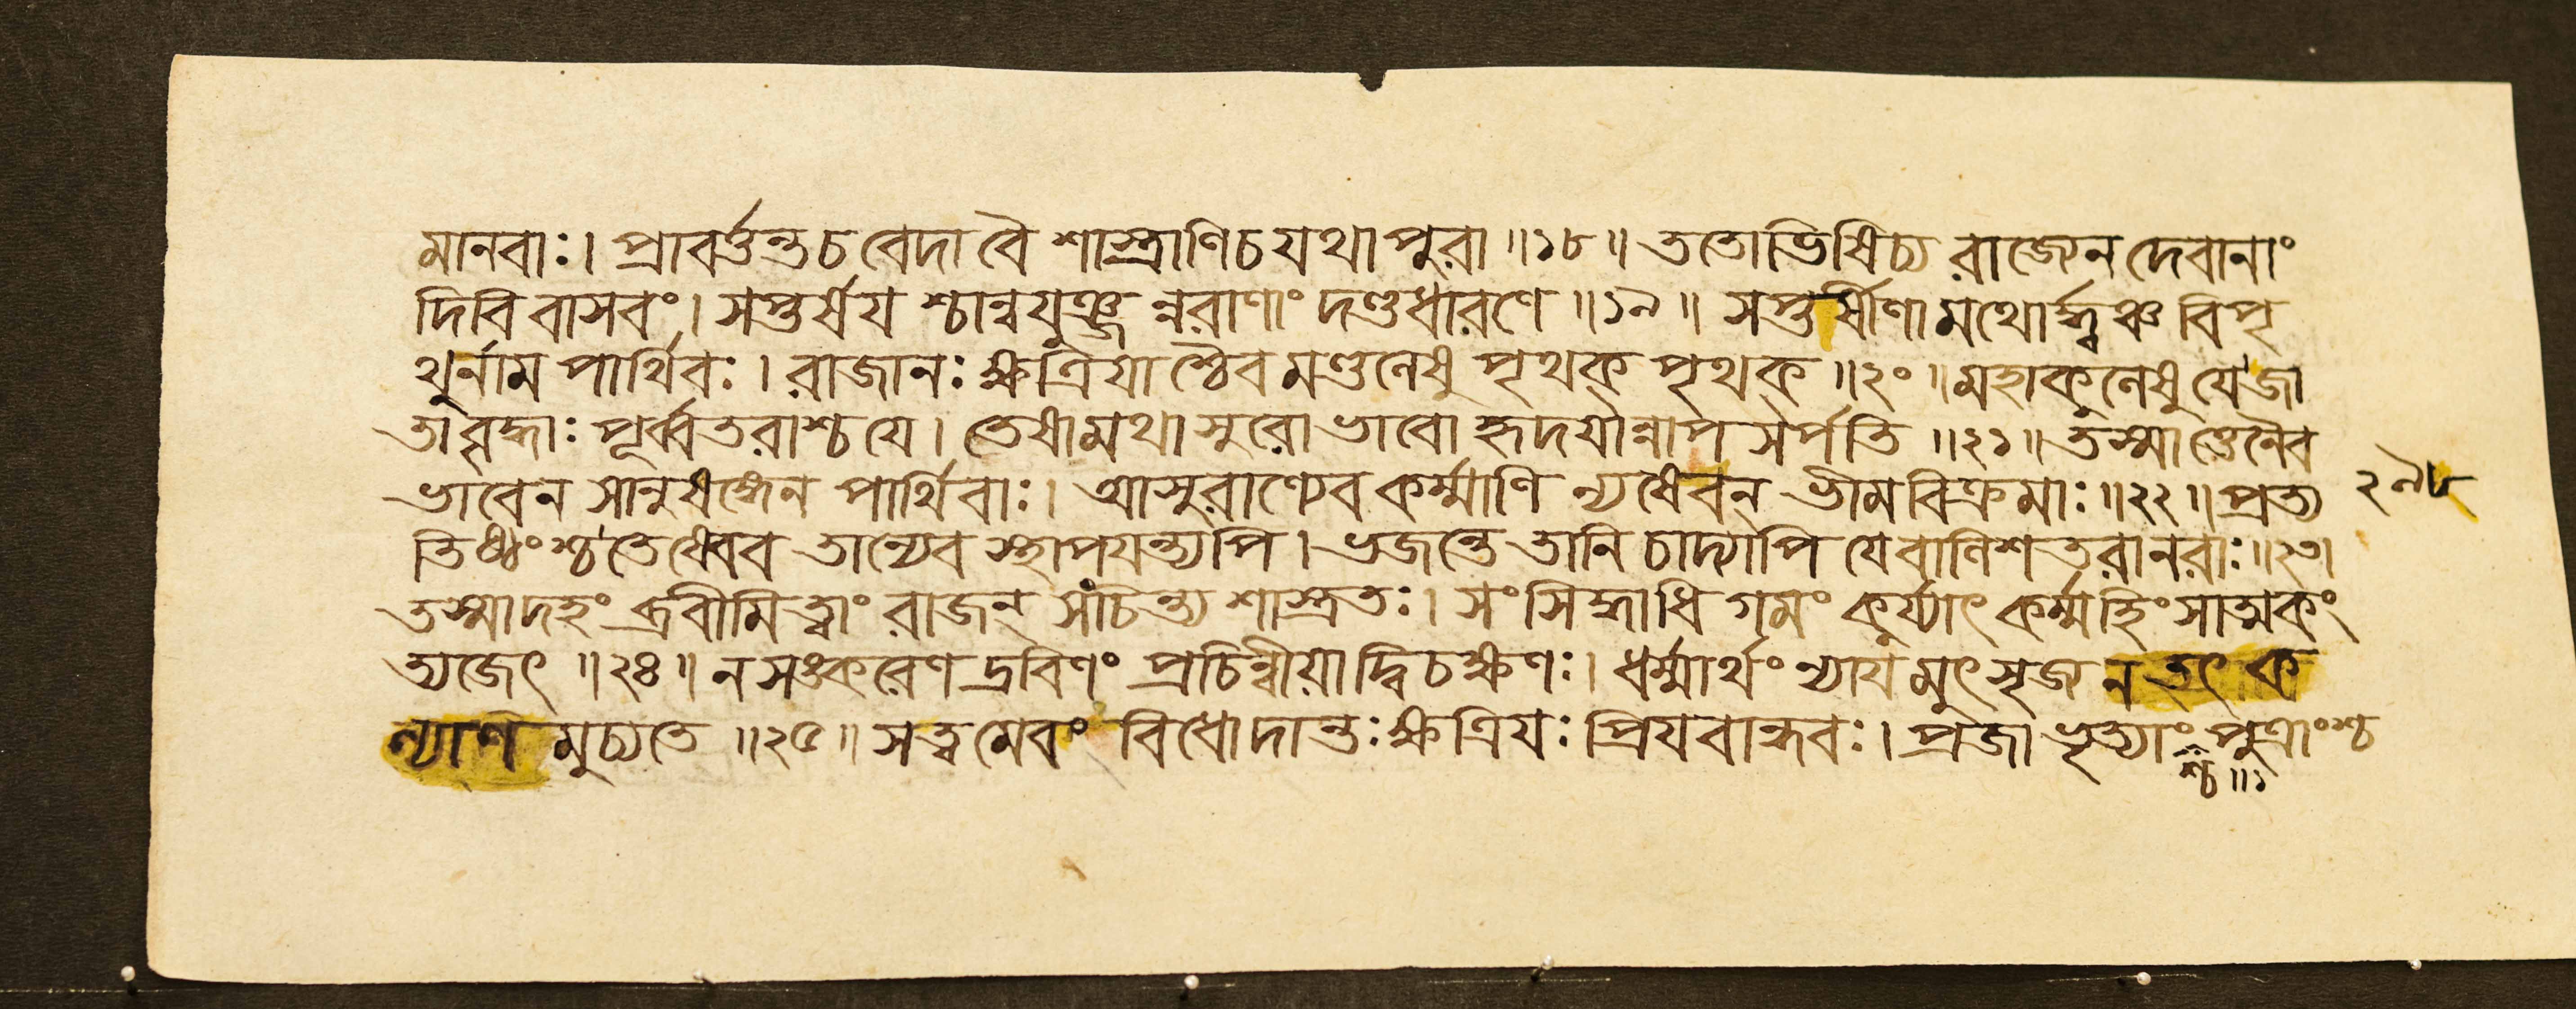 মানবাঃ। প্রাবর্ত্তন্তচ বেদা বৈ শাস্ত্রাণিচ যথা পুরা ॥১৮॥ ততোভিষিচ্য রাজ্যেন দেবানাং
দিবি বাসবং। সপ্তর্ষয শ্চান্বযুঞ্জ ন্নরাণাং দণ্ডধারণে ॥১৯॥ সপ্তর্ষীণা মথোর্দ্ধ্বঞ্চ বিপৃ
থুর্নাম পার্থিবঃ। রাজানঃ ক্ষত্রিযা শ্চৈব মণ্ডলেষু পৃথক্ পৃথক্ ॥২০॥ মহাকুলেষু যে জা
তা বৃদ্ধাঃ পূর্ব্বতরাশ্চ যে। তেষামথাসুরো ভাবো হৃদযান্নাপসর্পতি ॥২১॥ তস্মাত্তেনৈব
ভাবেন সানুষঙ্গেন পার্থিবাঃ। আসুরাণ্যেব কর্ম্মাণি ন্যষেবন্ ভীমবিক্রমাঃ ॥২২॥ প্রত্য
তিষ্ঠংশ্চ তেষ্বেব তান্যেব স্থাপযন্ত্যপি। ভজন্তে তানি চাদ্যাপি যে বালিশতরা নরাঃ ॥২৩॥
তস্মাদহং ব্রবীমি ত্বাং রাজন্ সংচিন্ত্য শাস্ত্রতঃ। সংসিদ্ধাধিগমং কুর্য্যাৎ কর্ম্মহিংসাত্মকং
ত্যজেৎ ॥২৪॥ ন সঙ্করেণ দ্রবিণং প্রচিন্বীয়াদ্বিচক্ষণঃ। ধর্ম্মার্থং ন্যায মুৎসৃজ্য ন তৎ ক
ল্যাণ মুচ্যতে ॥২৫॥ স ত্বমেবং বিধো দান্তঃ ক্ষত্রিযঃ প্রিযবান্ধবঃ। প্রজা ভৃত্যাং পুত্রাংশ্চ
শ্চ ॥১